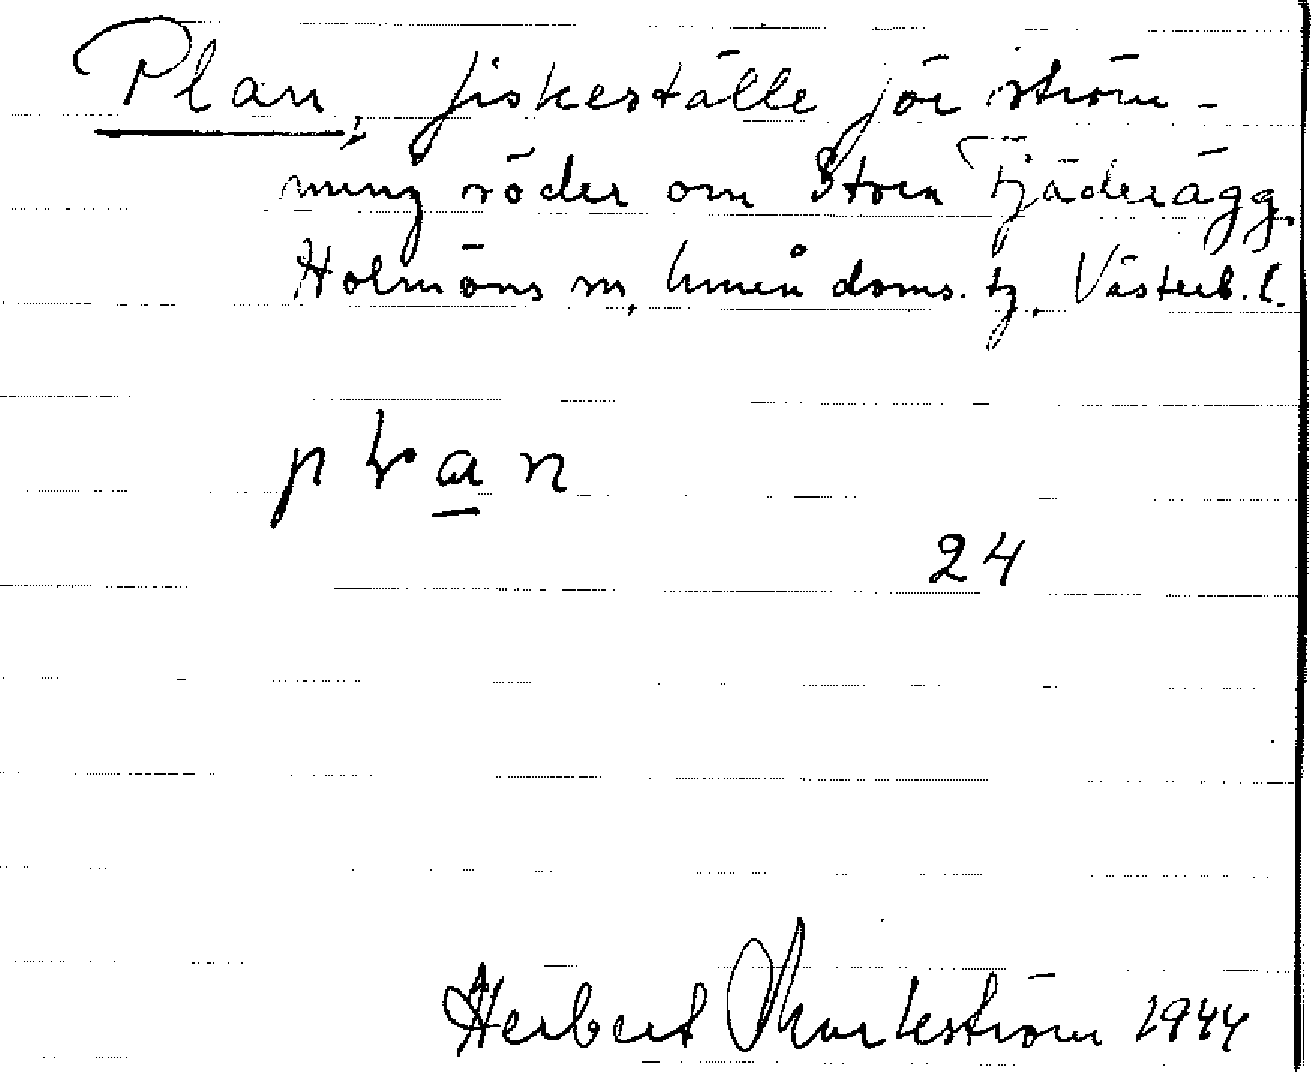 Plan, fiskeställe för ström-
ming söder om Stora Fjäderägg
Holmöns sn, Umeå doms. tg. Västerb. l.
plan
24
Herbert Markström 1944